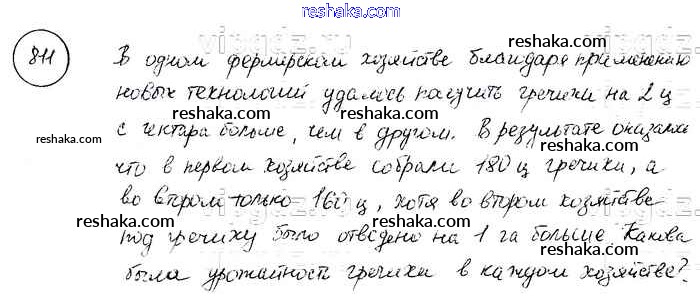 reshaka.com
811
reshaka.com
В одном фермерском хозяйстве благодаря применению
reshaka.com reshaka.com
новых технологий удалось получить гречихи на 2 ц
reshaka.com reshaka.com reshaka.com
с гектара больше, чем в другом. В результате оказалось
reshaka.com
что в первом хозяйстве собрали 180 ц гречихи, а
reshaka.com reshaka.com
во втором только 160 ц, хотя во втором хозяйстве
reshaka.com reshaka.com
под гречиху было отведено на 1 га больше Какова
reshaka.com reshaka.com
была урожайность гречихи в каждом хозяйстве?
reshaka.com